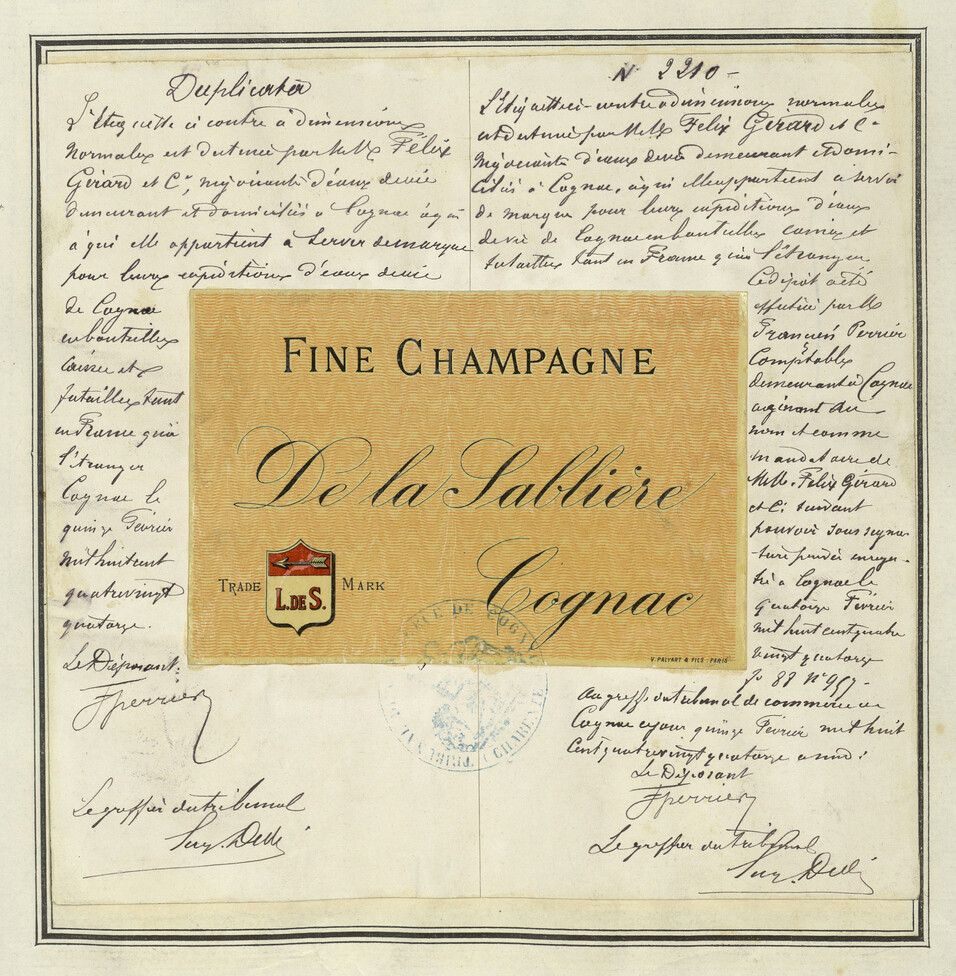 Duplicata
L'étiquette ci contre à dimensions
normales est destinée par MM Félix
Gérard et Cie, négociants d'eaux de vie
demeurant et domiciliés à Cognac à qui
à qui elle appartient à servir de marque
pour leurs expéditions d'eaux de vie
de Cognac
en bouteilles
caisses et
futailles tant
en France qu'à
l'étranger
Cognac le
quinze Février
mil huit cent
quatre vingt
quatorze.
Le Déposant:
FPerrier
Le greffier du tribunal
N° 2210 -
L'étiquette ci-contre à dimensions normales
est destinée par MM Félix Gérard et Cie
négociants d'eaux de vie demeurant et domi-
ciliés à Cognac, à qui elle appartient à servir
de marque pour leurs expéditions d'eaux
de vie de Cognac en bouteilles caisses et
futailles tant en France qu'à l'étranger
Ce dépôt a été
effectué par M
Francis Perrier
Comptable
demeurant à Cognac
agissant au
nom et comme
mandataire de
MM. Félix Gérard
et Cie suivant
pouvoir sous signa-
ture privée enregis-
tré à Cognac le
quatorze Février
mil huit cent quatre
vingt quatorze
fo 88 no 957 -
Au greffe du tribunal de commerce de
Cognac ce jour quinze Février mil huit
cent quatre vingt quatorze a midi:
Le Déposant
FPerrier
Le greffier du tribunal
FINE CHAMPAGNE
De la Sablière
Cognac
TRADE MARK
L. DE S.
V. PALYART & FILS. PARIS
TRIBUNAL DE COMMERCE DE COGNAC (CHARENTE)